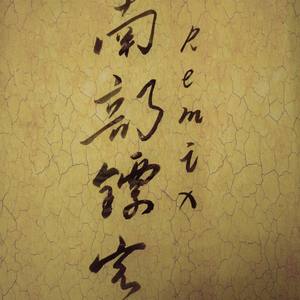 南部鏢客
Remix